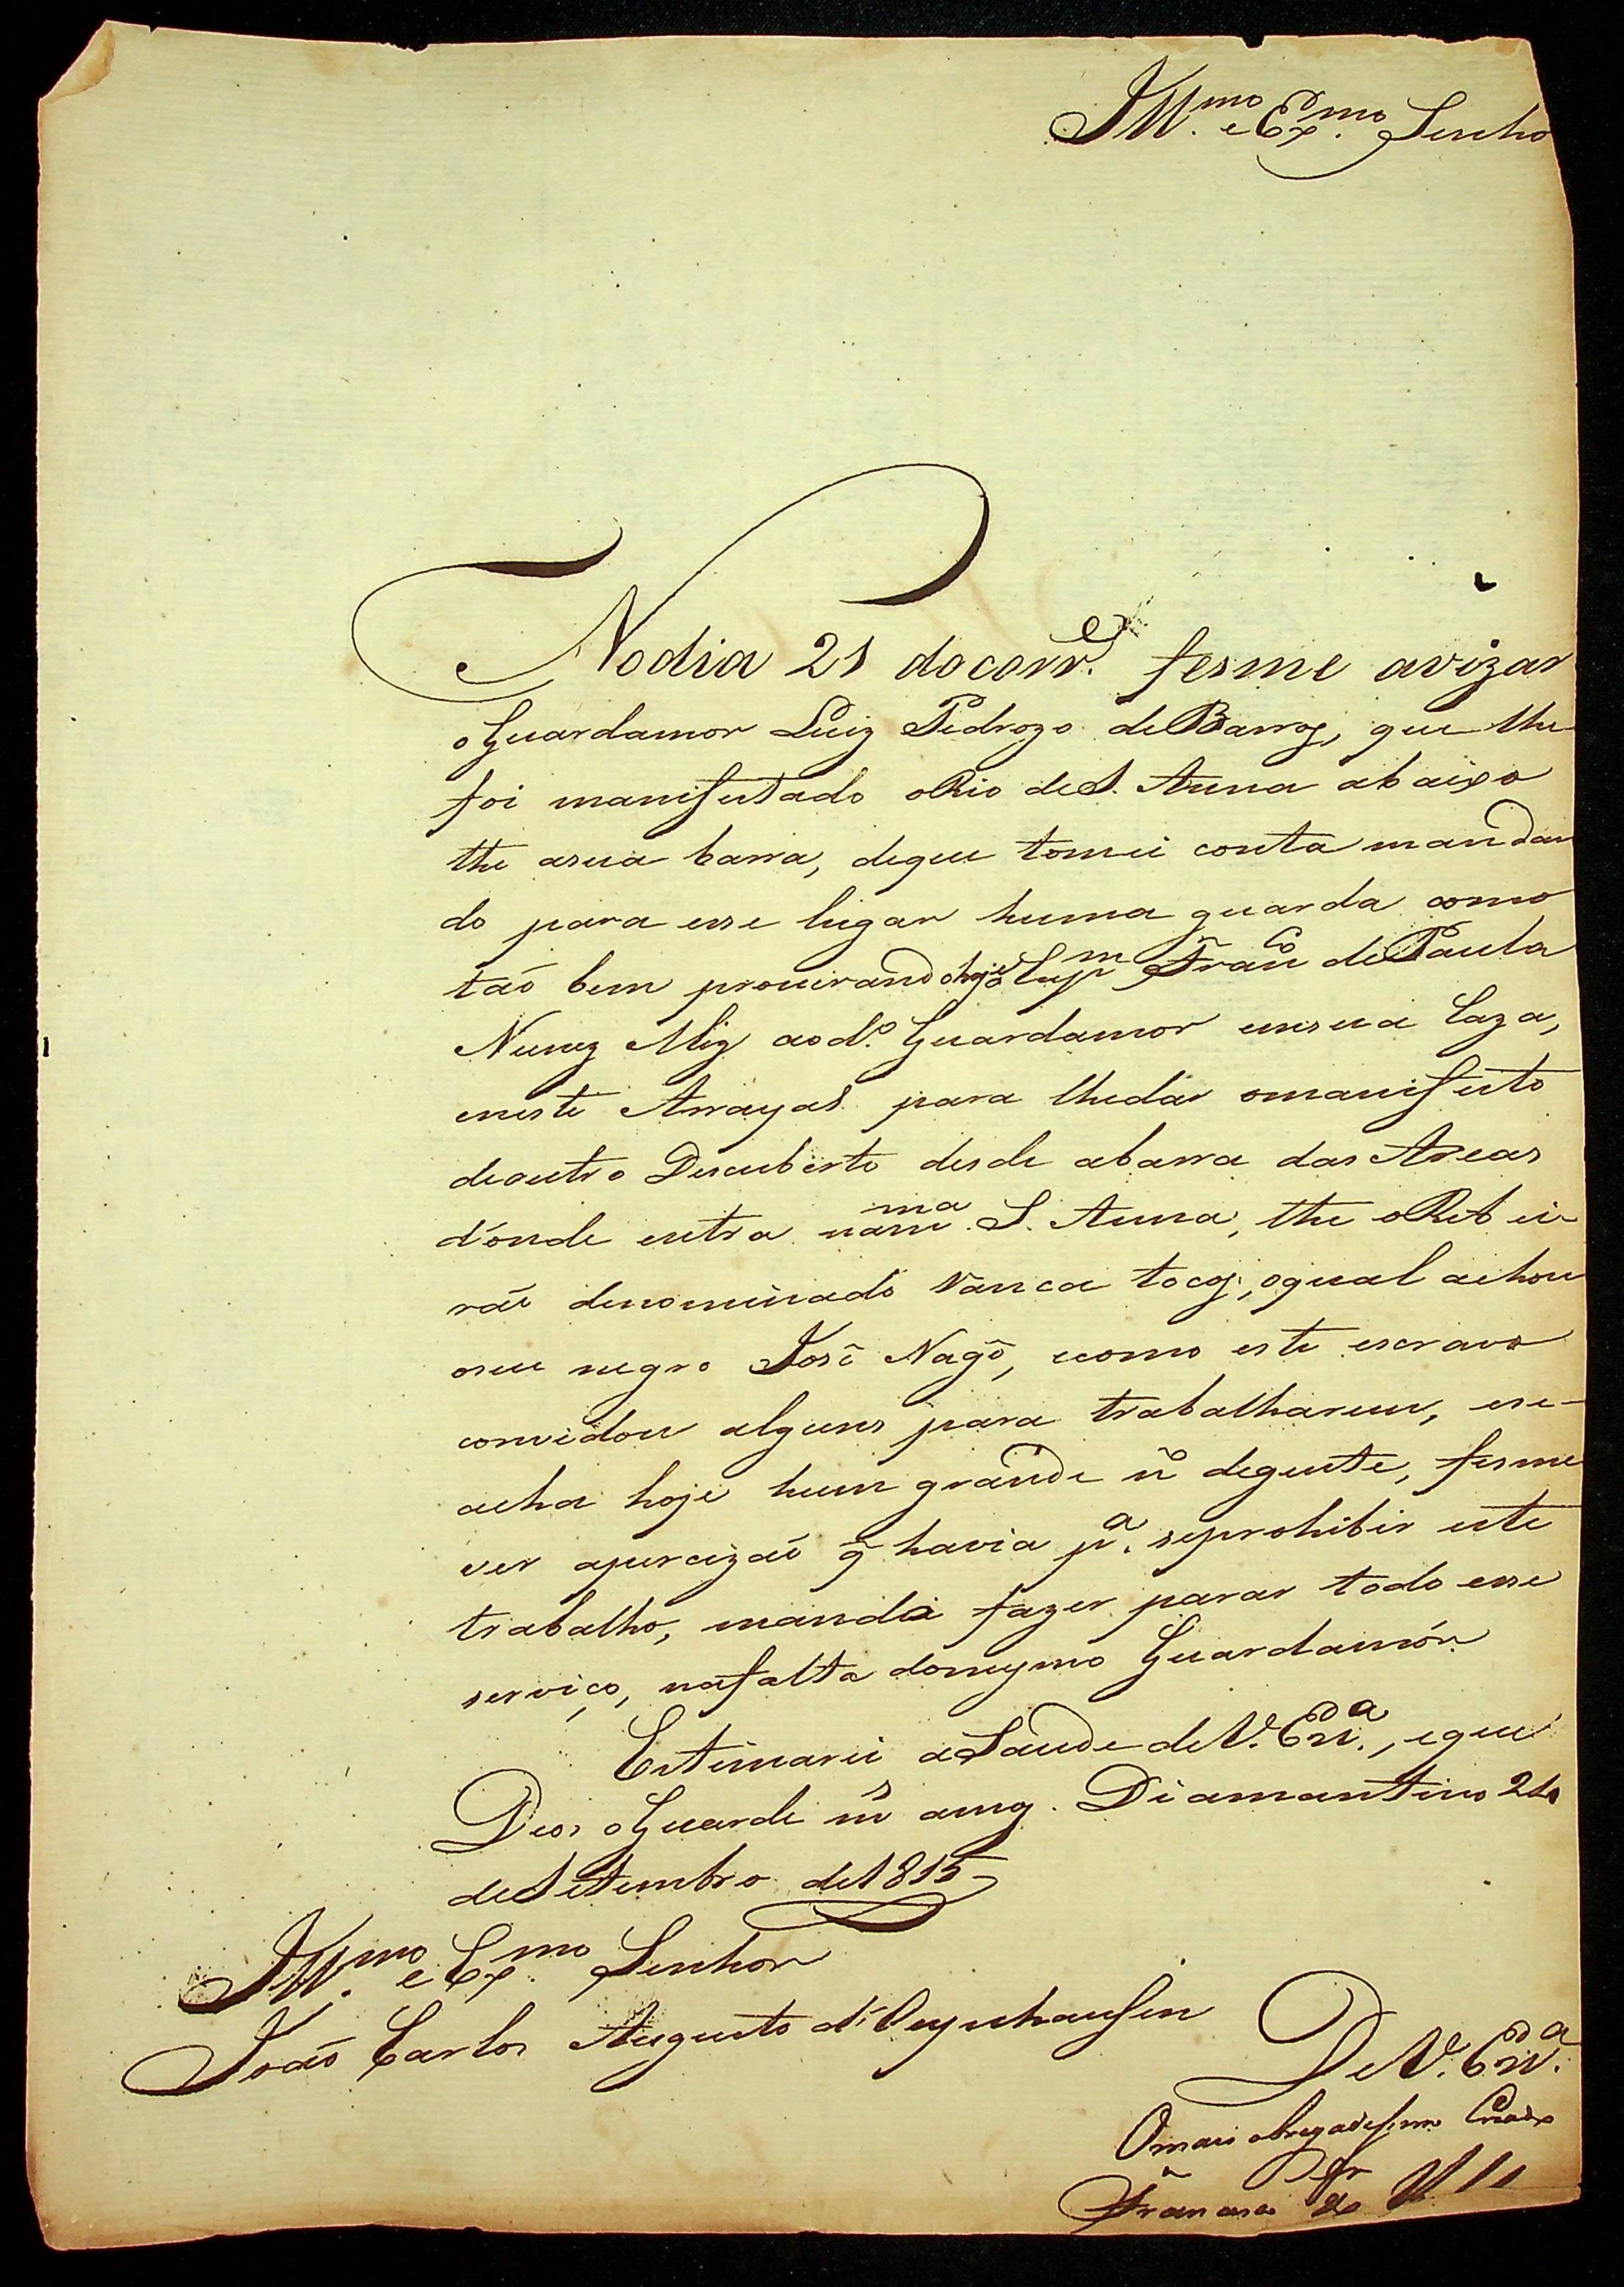 Ill.mo e Ex.mo Senho
No dia 21 do corr.e fesme avizar
o Guardamor Luiz Pedrozo de Barros, que lhe
foi manifestado o Rio de S. Anna abaixo
the a sua barra, de que tomei conta mandan
do para esse lugar huma guarda como
taõ bem procurando hoje o Cap.m Fran.co de Paula
Nunez Miz ao d.o Guardamor em sua Caza,
e neste Arrayal para lhe dar o manifesto
de outro Descuberto desde a barra das Areas
d'onde entra na m.ma S. Anna, the o Ribei-
raõ denominado vanca tocos, o qual achou
o seu negro José Nagô, e como este escravo
convidou alguns para trabalharem, e se
acha hoje hum grande n.o de gente, fesme
ver a percizaõ q̃ havia p.a se prohibir este
trabalho, mandei fazer parar todo esse
serviço, na falta do mesmo Guardamór.
Estimarei a Saude de V. Ex.a, e que
Deos o Guarde m.s ann.s. Diamantino 24
de Setembro de 1815
Ill.mo e Ex.mo Senhor
Joaõ Carlos Augusto d'Oeynhausen
De V. Ex.a
O mais obregadissimo Criado
Francisco de